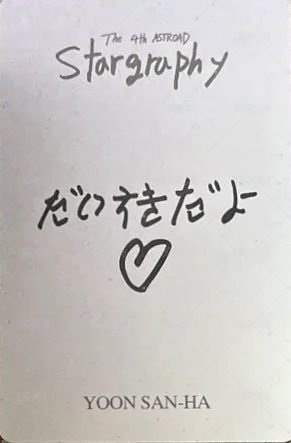 The 4th ASTROAD
Stargraphy
だいすきだよ
YOON SAN-HA